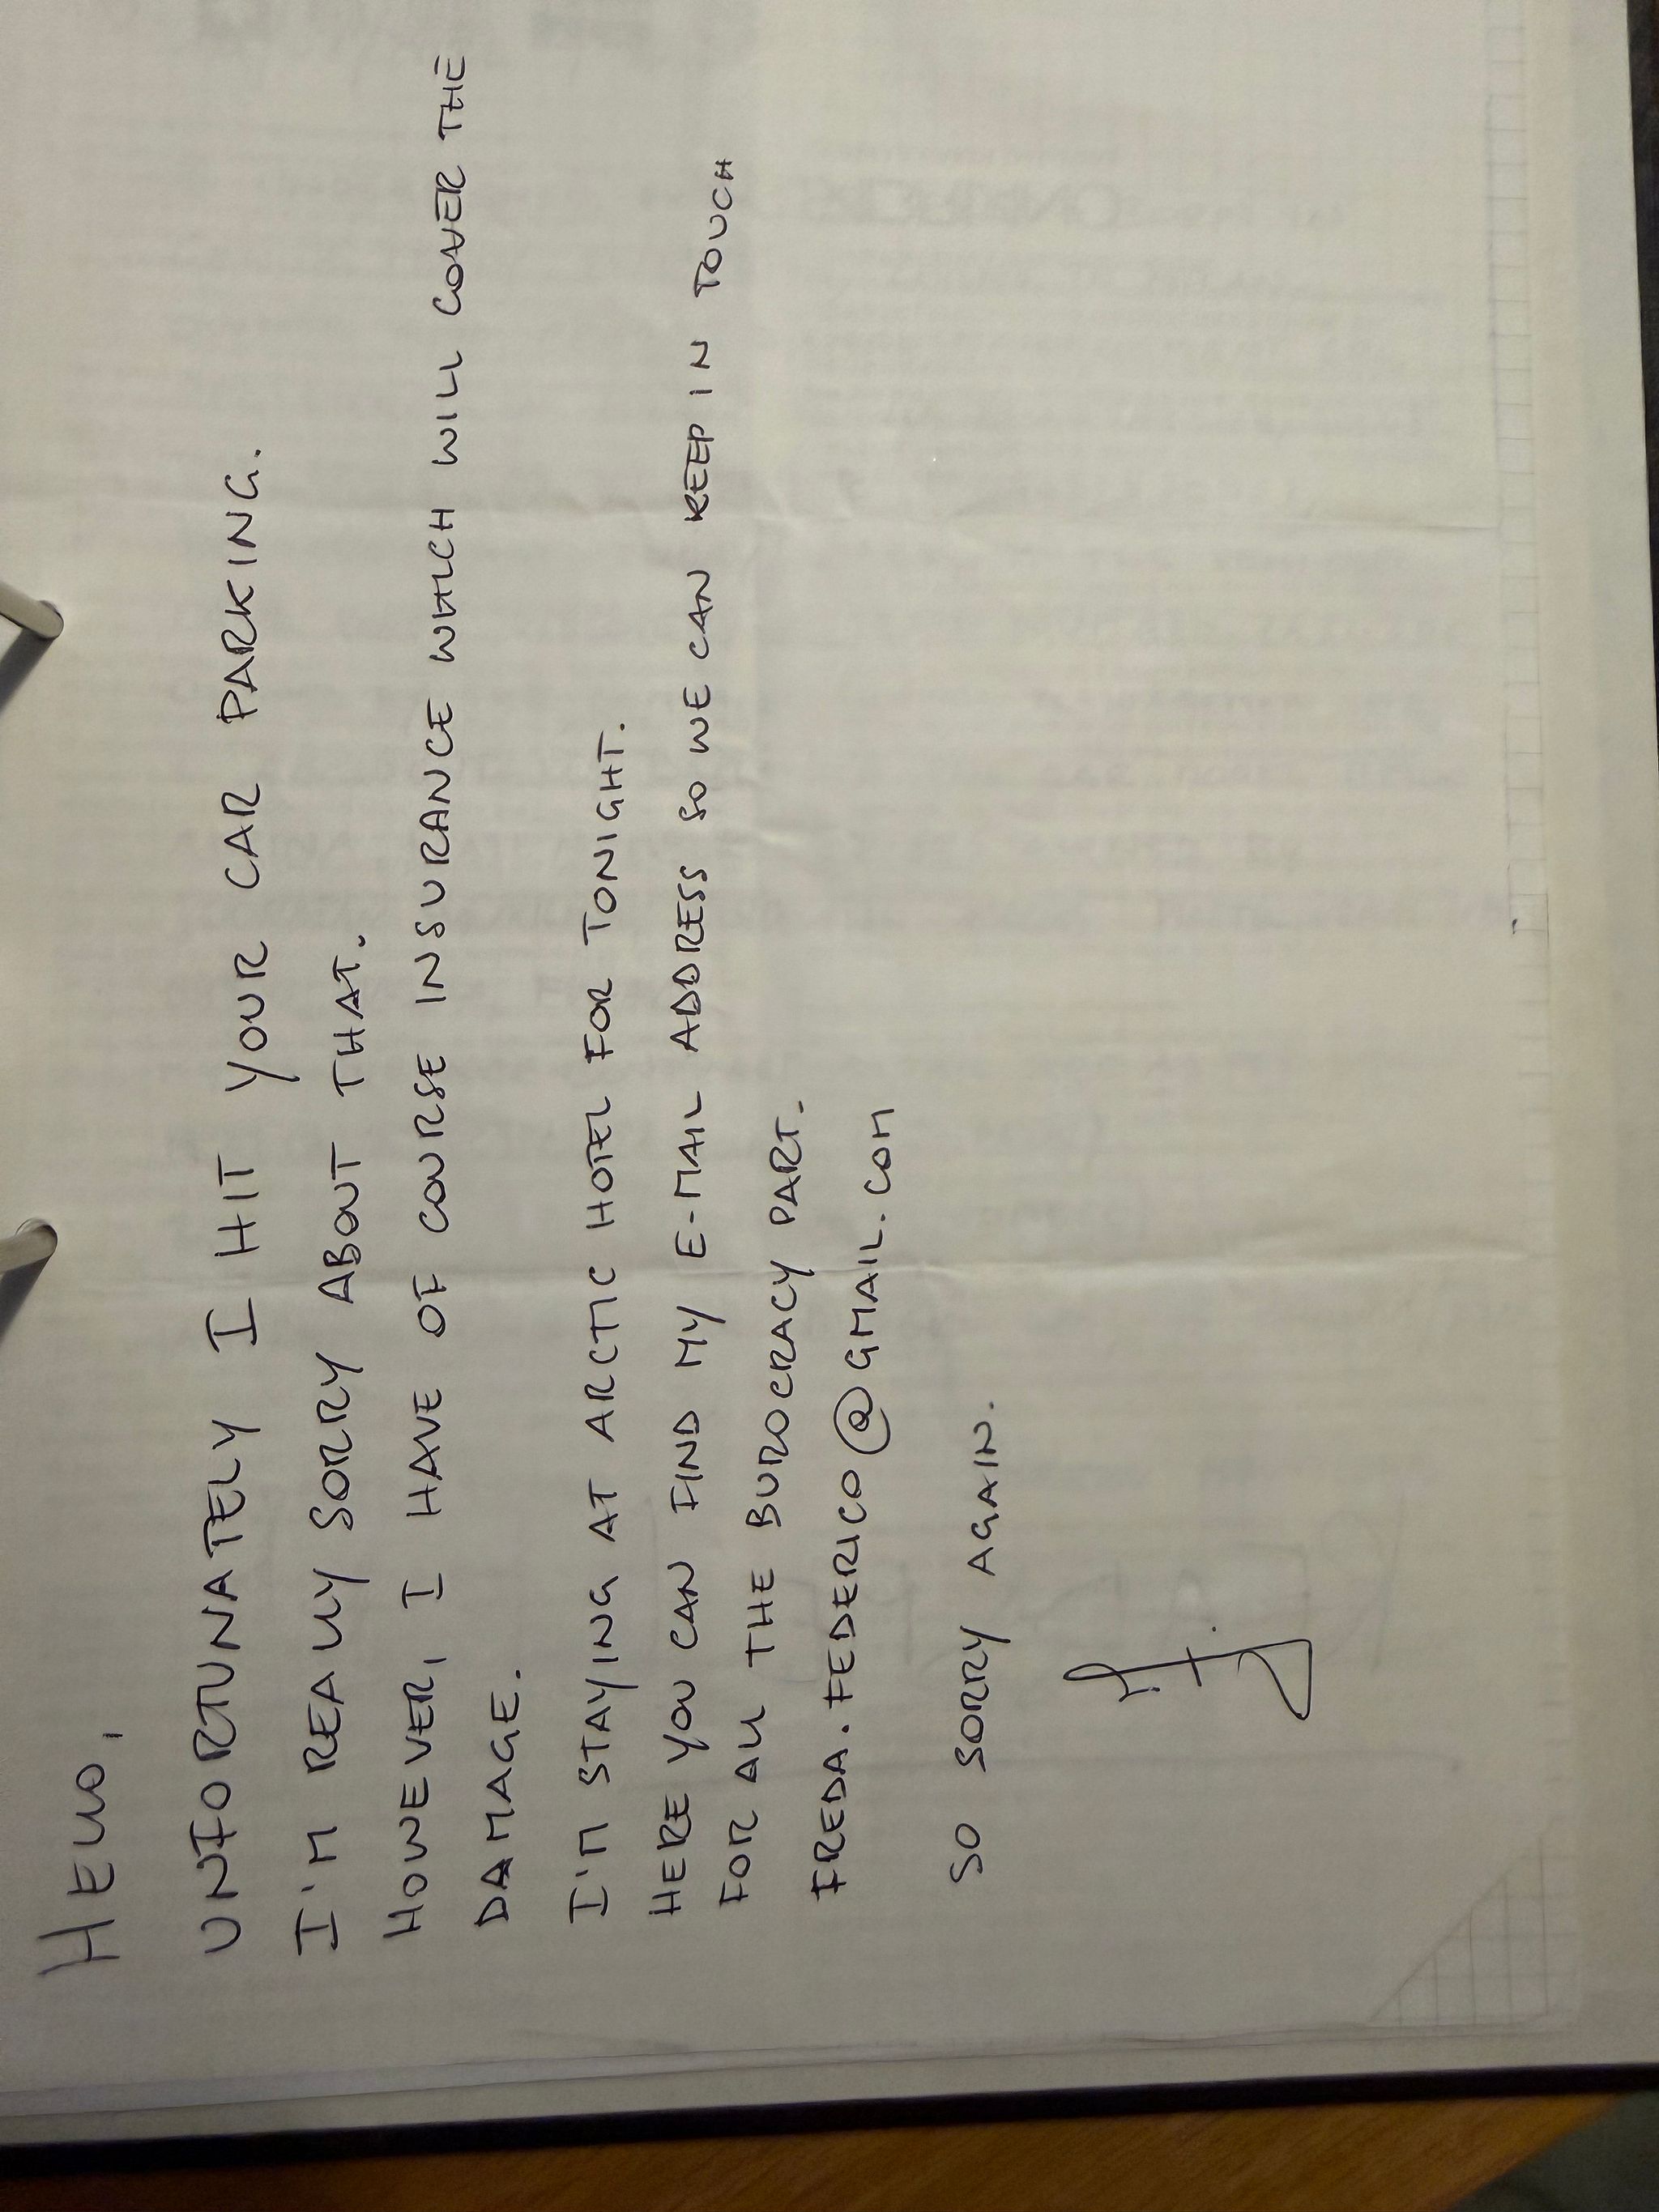 HELLO,
UNFORTUNATELY I HIT YOUR CAR PARKING.
I'M REALLY SORRY ABOUT THAT.
HOWEVER, I HAVE OF COURSE INSURANCE WHICH WILL COVER THE
DAMAGE.
I'M STAYING AT ARCTIC HOTEL FOR TONIGHT.
HERE YOU CAN FIND MY E-MAIL ADDRESS SO WE CAN KEEP IN TOUCH
FOR ALL THE BUROCRACY PART.
FREDA.FEDERICO@GMAIL.COM
SO SORRY AGAIN.